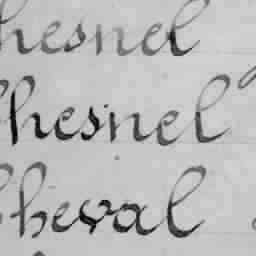 hesnel
Chesnel
Cheval